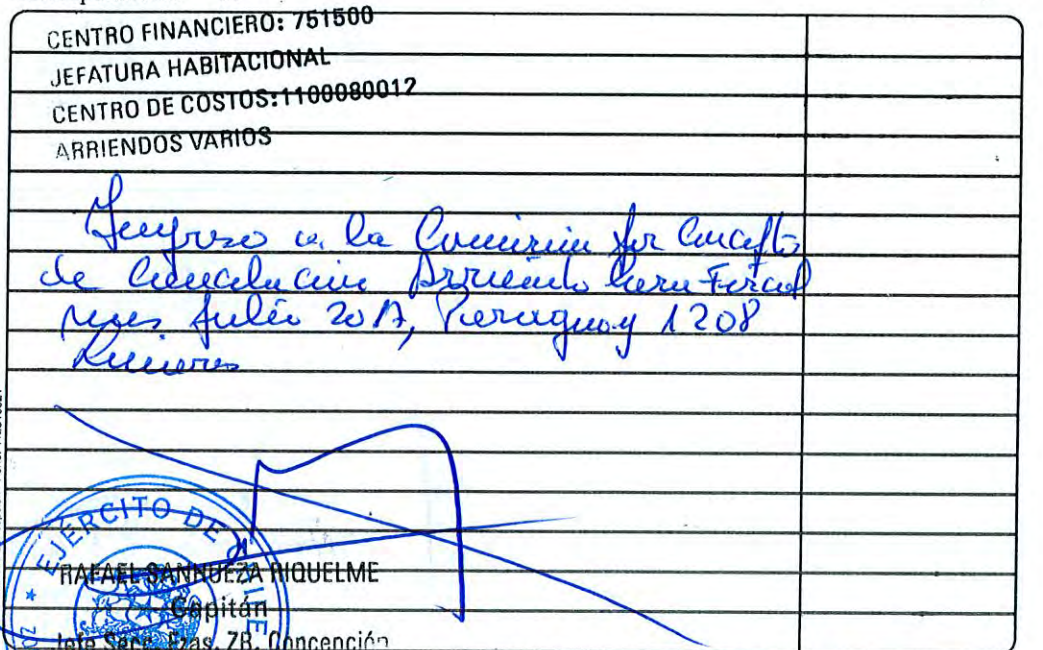 CENTRO FINANCIERO: 751500
JEFATURA HABITACIONAL
CENTRO DE COSTOS:1100080012
ARRIENDOS VARIOS
Ingreso a la Comisión por Concepto
de Cancelación Arriendo Fiscal
mes Julio 2017, Paraguay 1208
EJERCITO DE CHILE
RAFAEL SANHUEZA RIQUELME
Capitán
Jefe Secc. Fzas. ZB. Concepción